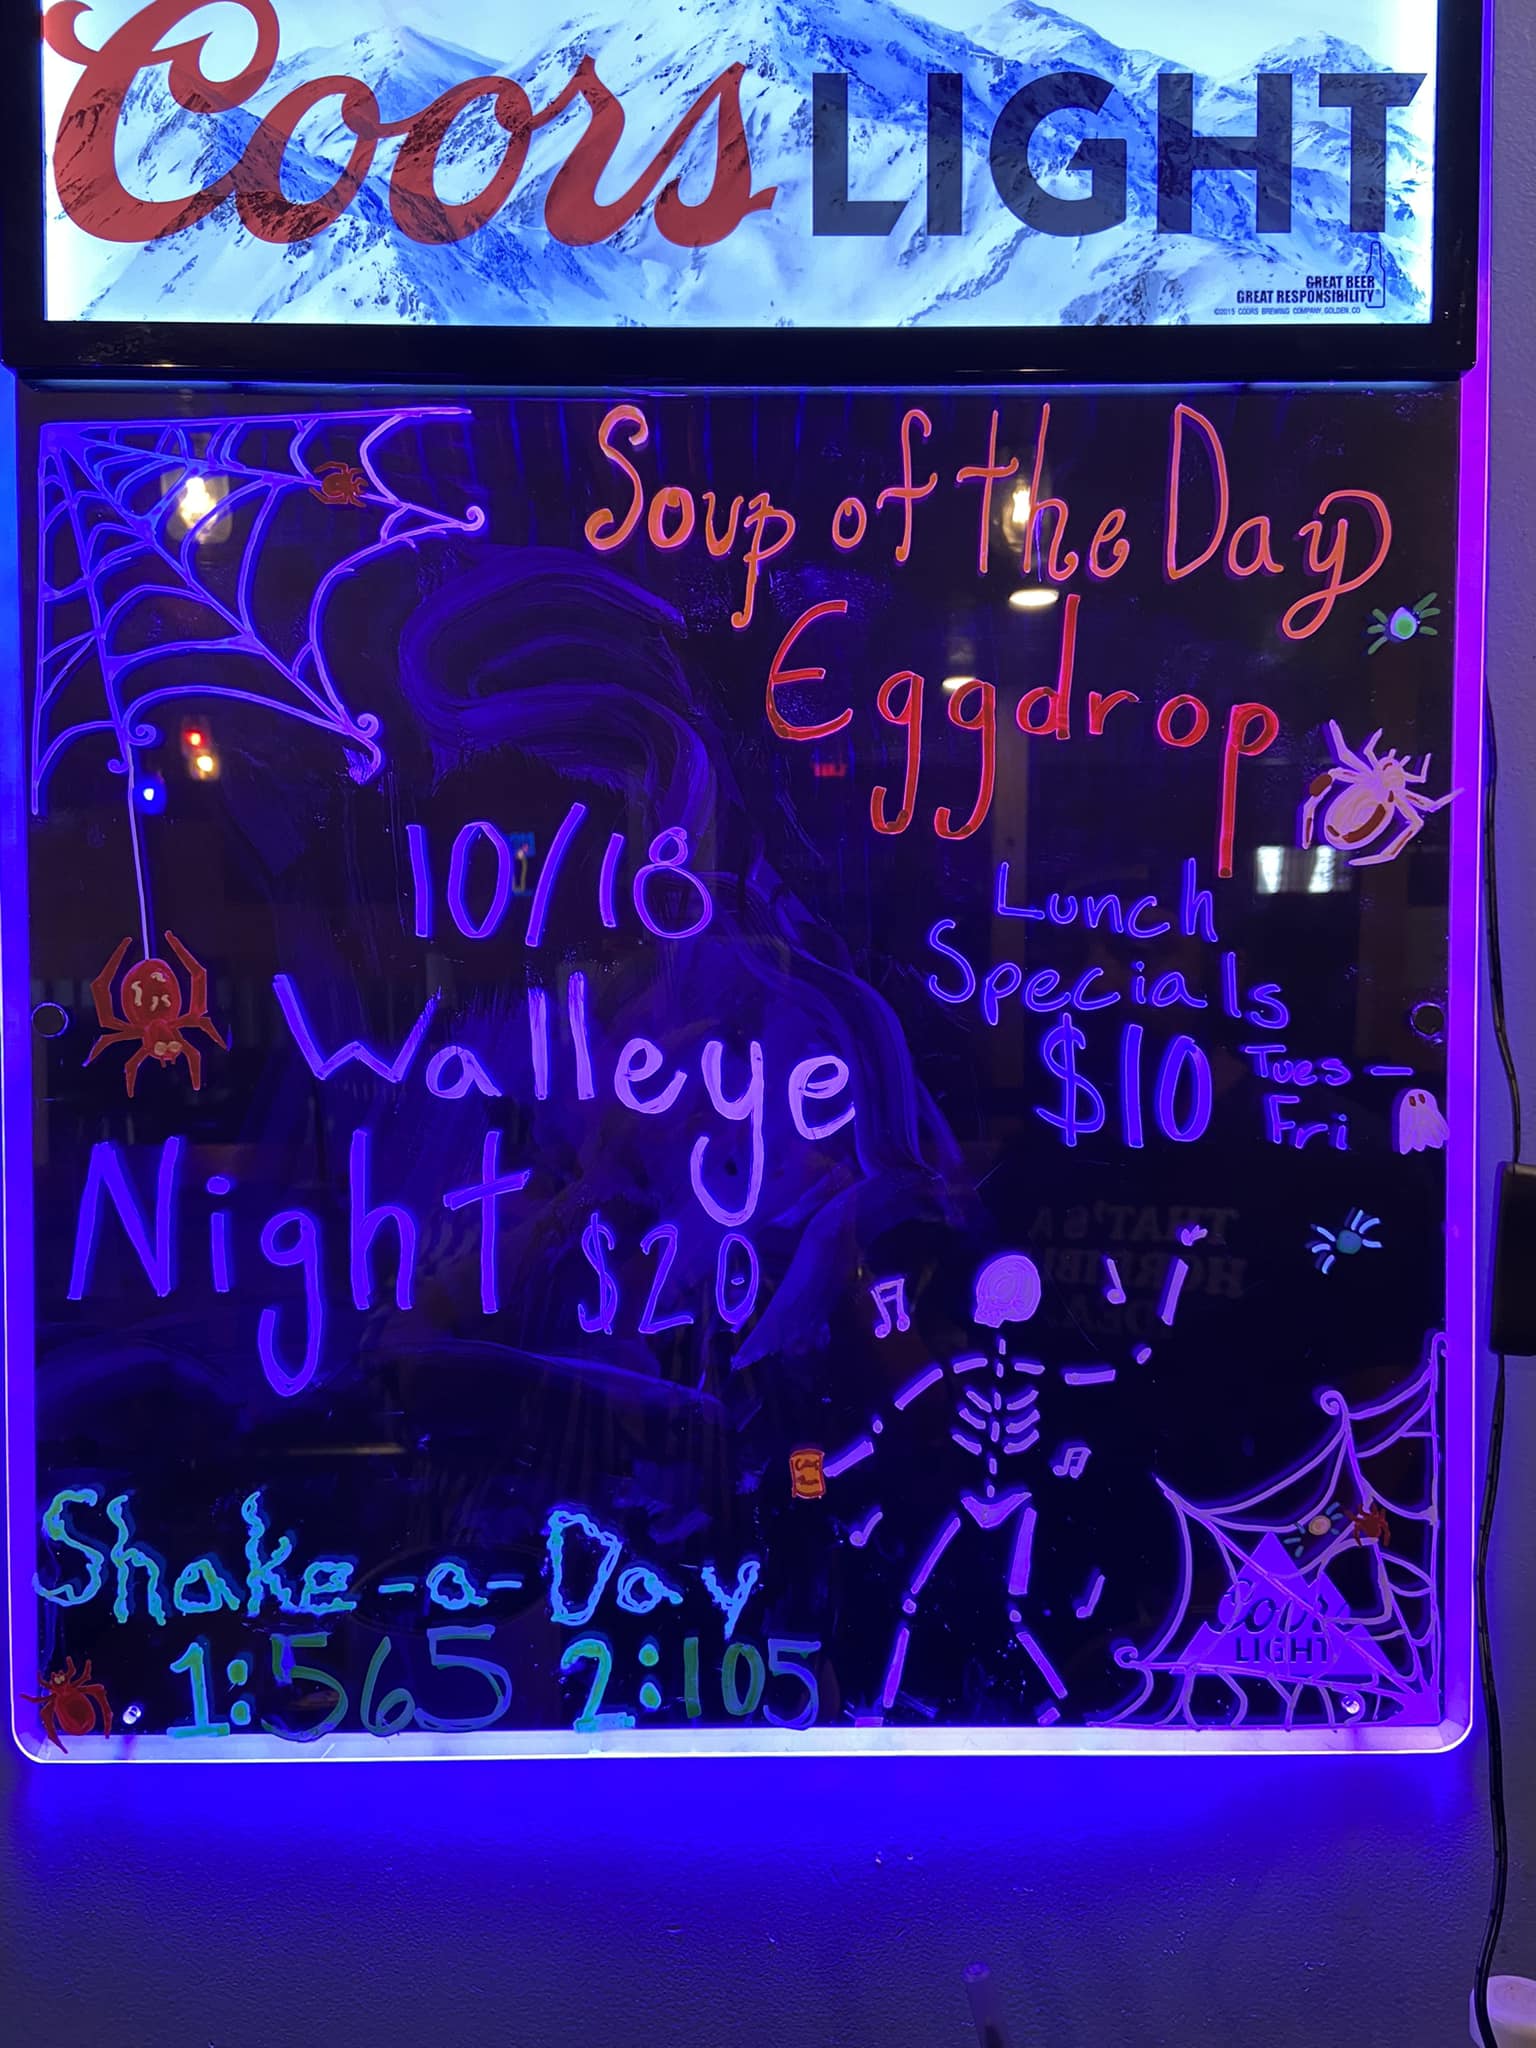 Coors LIGHT
GREAT BEER
GREAT RESPONSIBILITY
©2015 COORS BREWING COMPANY, GOLDEN, CO
Soup of the Day
Eggdrop
10/18
Walleye
Night $20
Lunch
Specials
$10 Tues -
Fri
THAT'S A
HORRIBLE
IDEA.
Shake-a-Day
1:565 2:105
Coors
LIGHT